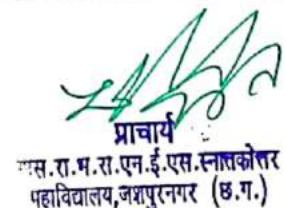 प्राचार्य
रा.भ.रा.एन.ई.एस.स्नातकोत्तर
महाविद्यालय,जशपुरनगर (छ.ग.)